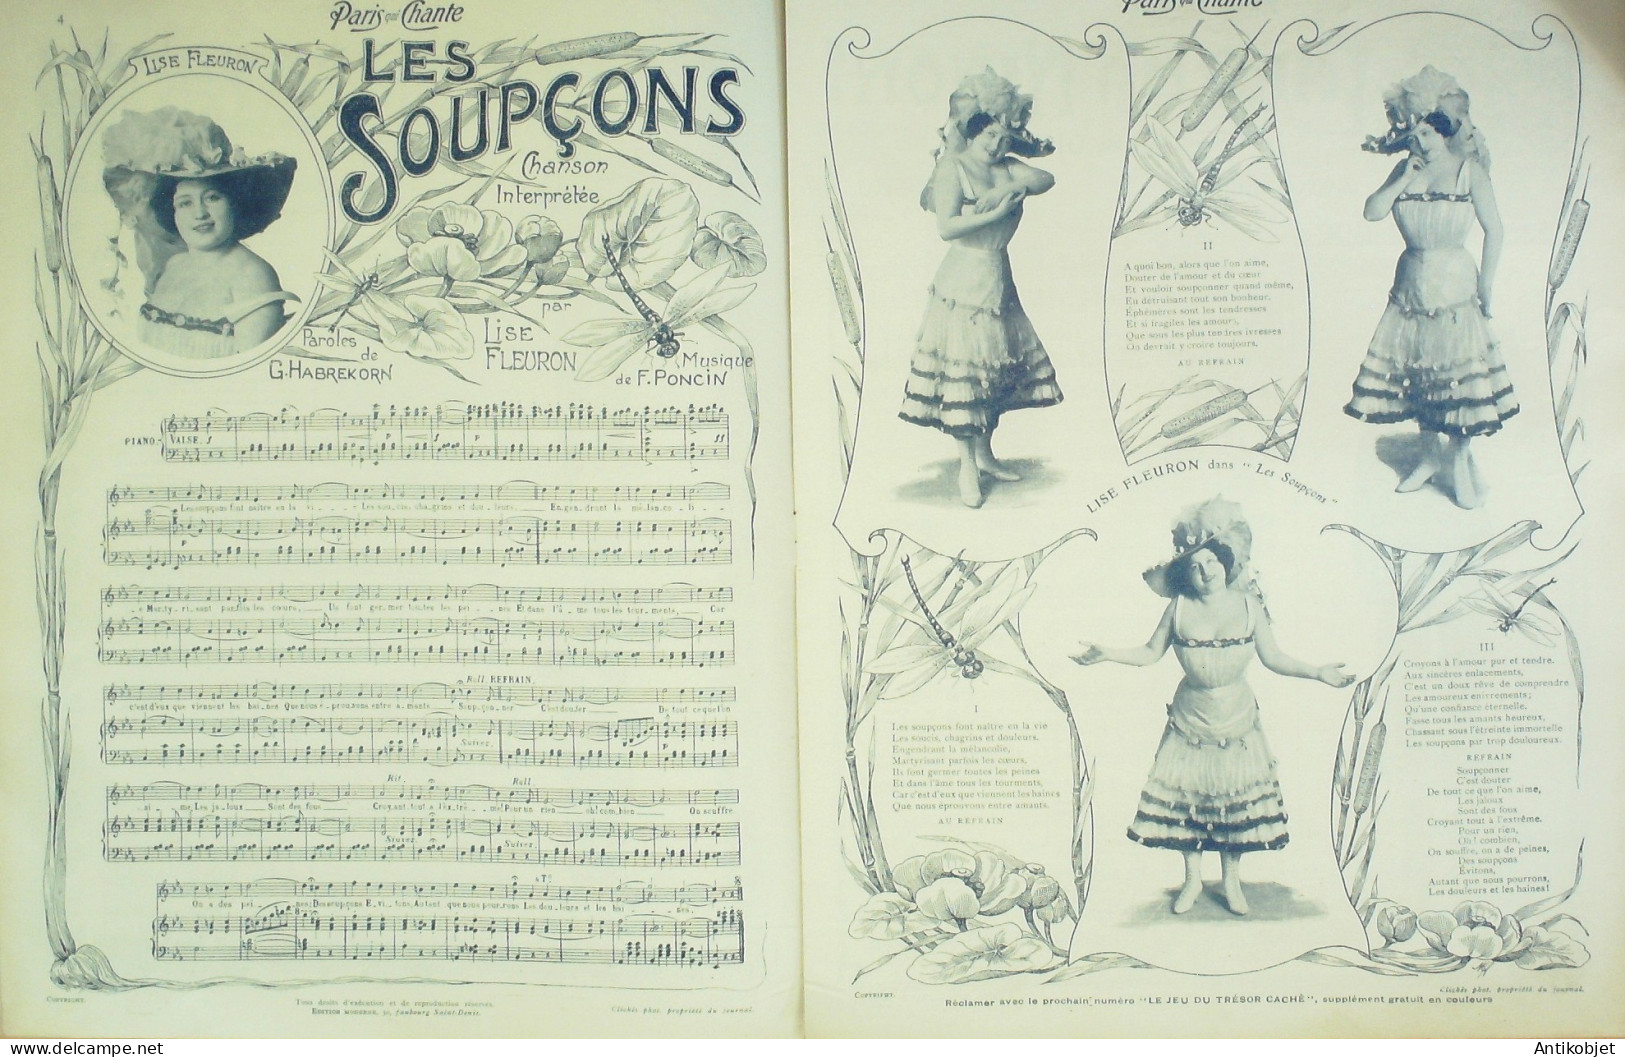 4
Paris qui Chante
LISE FLEURON
LES
SOUPÇONS
Chanson
Interprétée
par
LISE
FLEURON
Paroles
de
G. HABREKORN
Musique
de F. PONCIN
PIANO.
VALSE.
Les soupçons font naître en la vi - - - e Les soucis, chagrins et dou - leurs, En - gen - drant la mé - lan - co - li -
- e Mar - ty - ri - sant par - fois les cœurs, Ils font ger - mer tou - tes les pei - - nes Et dans l'â - me tous les tour - ments, Car
c'est d'eux que viennent les hai - nes Que nous é - prou - vons entre a - mants. Soup - çon - ner C'est dou - ter De tout ce que l'on
Rall. REFRAIN.
Suivez.
ai - me, Les ja - loux Sont des fous Croy - ant tout à l'ex - trê - me! Pour un rien oh! com - bien On souffre
Rit.
Rall.
Suivez
Suivez.
On a des pei - nes; Des soupçons E - vi - tons, Autant que nous pour - rons Les dou - leurs et les hai - nes.
COPYRIGHT.
Tous droits d'exécution et de reproduction réservés.
EDITION MONDHOR, 30, faubourg Saint-Denis.
Clichés phot. propriété du journal.
Paris qui Chante
II
A quoi bon, alors que l'on aime,
Douter de l'amour et du cœur
Et vouloir soupçonner quand même,
En détruisant tout son bonheur.
Éphémères sont les tendresses
Et si fragiles les amours,
Que sous les plus tendres ivresses
On devrait y croire toujours.
AU REFRAIN
LISE FLEURON dans "Les Soupçons"
I
Les soupçons font naître en la vie
Les soucis, chagrins et douleurs,
Engendrant la mélancolie,
Martyrisant parfois les cœurs,
Ils font germer toutes les peines
Et dans l'âme tous les tourments,
Car c'est d'eux que viennent les haines
Que nous éprouvons entre amants.
AU REFRAIN
III
Croyons à l'amour pur et tendre,
Aux sincères enlacements,
C'est un doux rêve de comprendre
Les amoureux enivrements;
Qu'une confiance éternelle,
Fasse tous les amants heureux,
Chassant sous l'étreinte immortelle
Les soupçons par trop douloureux.
REFRAIN
Soupçonner
C'est douter
De tout ce que l'on aime,
Les jaloux
Sont des fous
Croyant tout à l'extrême.
Pour un rien,
Oh! combien,
On souffre, on a de peines,
Des soupçons
Évitons,
Autant que nous pourrons,
Les douleurs et les haines!
COPYRIGHT.
Clichés phot. propriété du journal.
Réclamer avec le prochain numéro "LE JEU DU TRÉSOR CACHÉ", supplément gratuit en couleurs
Antikobjet